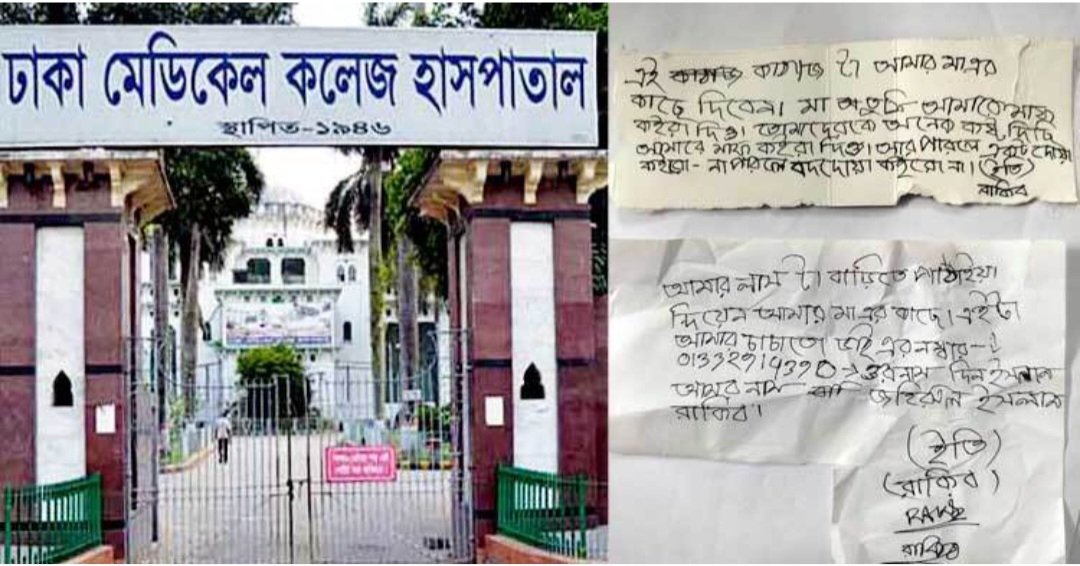 ঢাকা মেডিকেল কলেজ হাসপাতাল
স্থাপিত-১৯৪৬
এই কাগজ টা আমার মা এর
কাছে দিবেন। মা তুমি আমাকে মাফ
কইরা দিও। তোমাদেরকে অনেক কষ্ট দিছি
আমারে মাফ কইরা দিও। আর পারলে একটু দোয়া
কইরো - না পারলে বদদোয়া কইরো না। (ইতি)
রাকিব
আমার লাশ টা বাড়িতে পাঠাইয়া
দিয়েন আমার মা এর কাছে। এইটা
আমার চাচাতো ভাই এর নম্বার-
ওর নাম দিন ইসলাম
আমার নাম জহিরুল ইসলাম
রাকিব।
(ইতি)
(রাকিব)
রাকিব